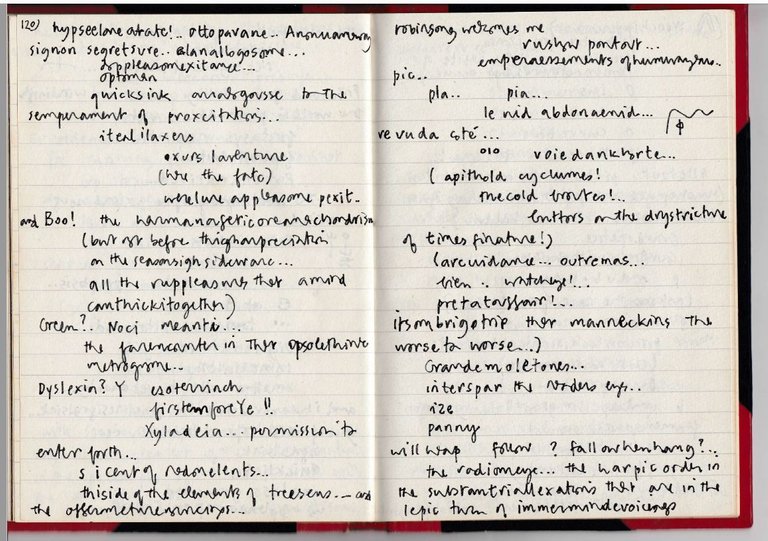 120) hypseelane atrate!.. ottopavane...
signon segretsure.. alanallogosome...
doppleasomexitance...
optoman
quicksink analogousse to the
semperament of proxcitation...
itealilaxers
exurs laventure
(here the fate)
wherelune appleasome pexit..
and Boo! the
(but not before thighanpreciation
on the seasonsigh sidewarc...
all the suppleasures that amind
canthickitogether)
Green?. Noci meanti..
the farencanter in that opsolethinic
metrogome...
Dyslexia? Y esoterninch
firstemforeye !!
Xyladeia... permission to
enter forth...
sicent of redonelents...
thisside of the elements of treesens... and
the
robinsong welcomes me
rushw pontout...
pic..
pla.. pia...
le nid abdonaenid...
re vu da coté... ϕ
olo voiedankhorte...
(apithold cyclumes!
the cold brontes!..
buttors on the drystricture
of times finature!)
(arcuidance... outremas...
bien.. watcheye!...
pretatoussoir!..
itsombrigotrip that manneckins the
worse to worse...)
Grande moletones...
interspar the naders eye..
ize
panny
will weap follow? fallowhenhang?..
the radiomeye... the warpic order in
the substantriallexations that are in the
lepic turn of immermindevoicings